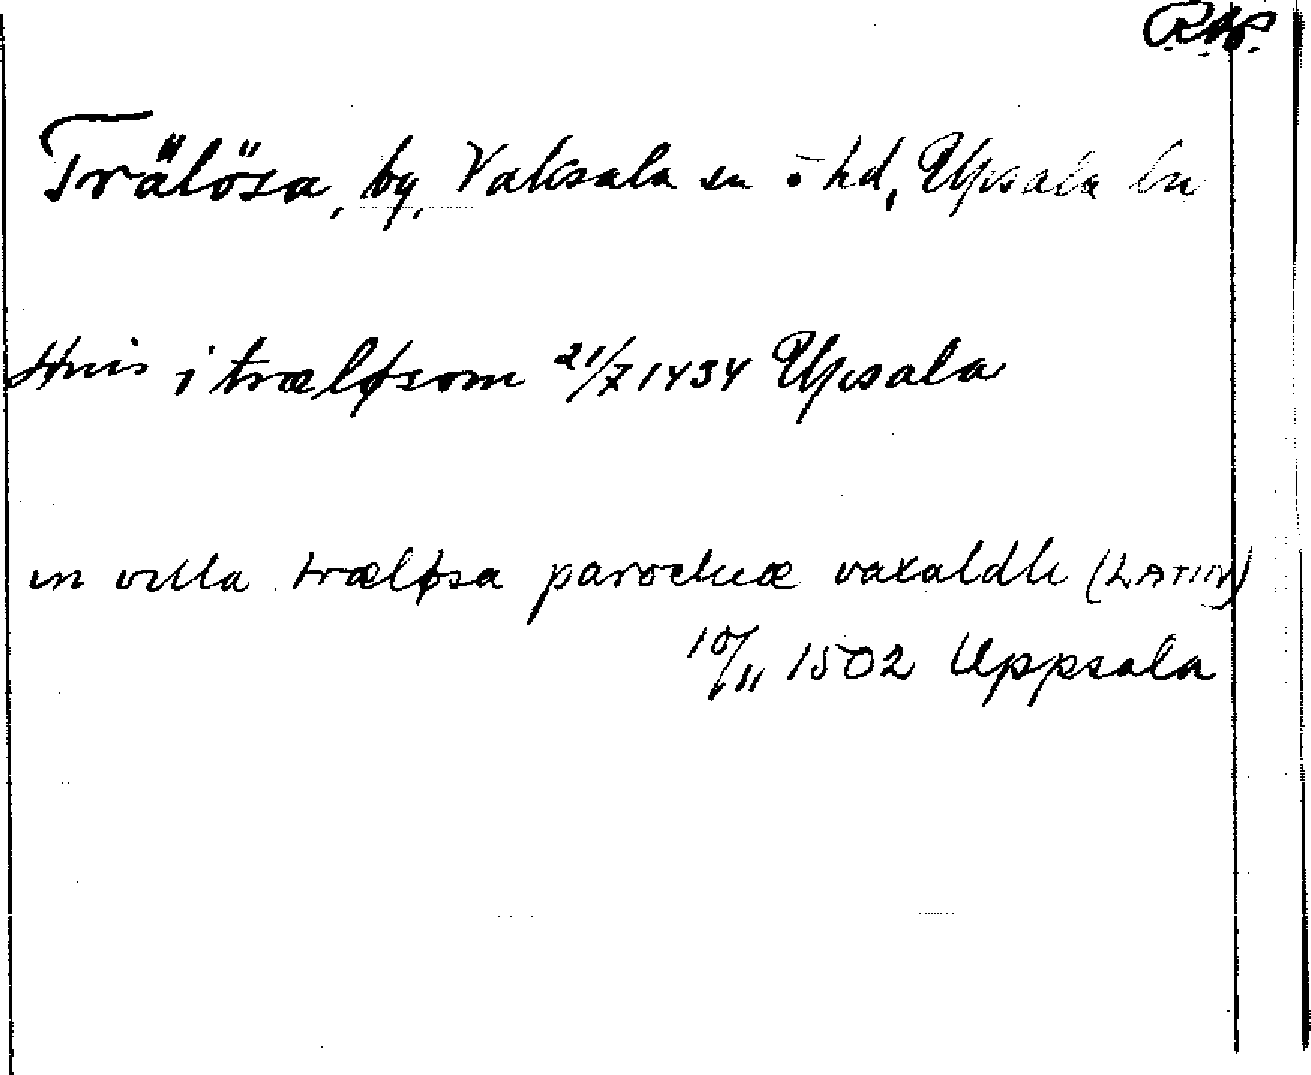 RAP.
Trälösa, by, Vaksala sn o hd, Upsala län
i træløsom 21/7 1434 Upsala
in villa træløsa parochiæ vaxaldh (LATIN)
10/11 1502 Uppsala